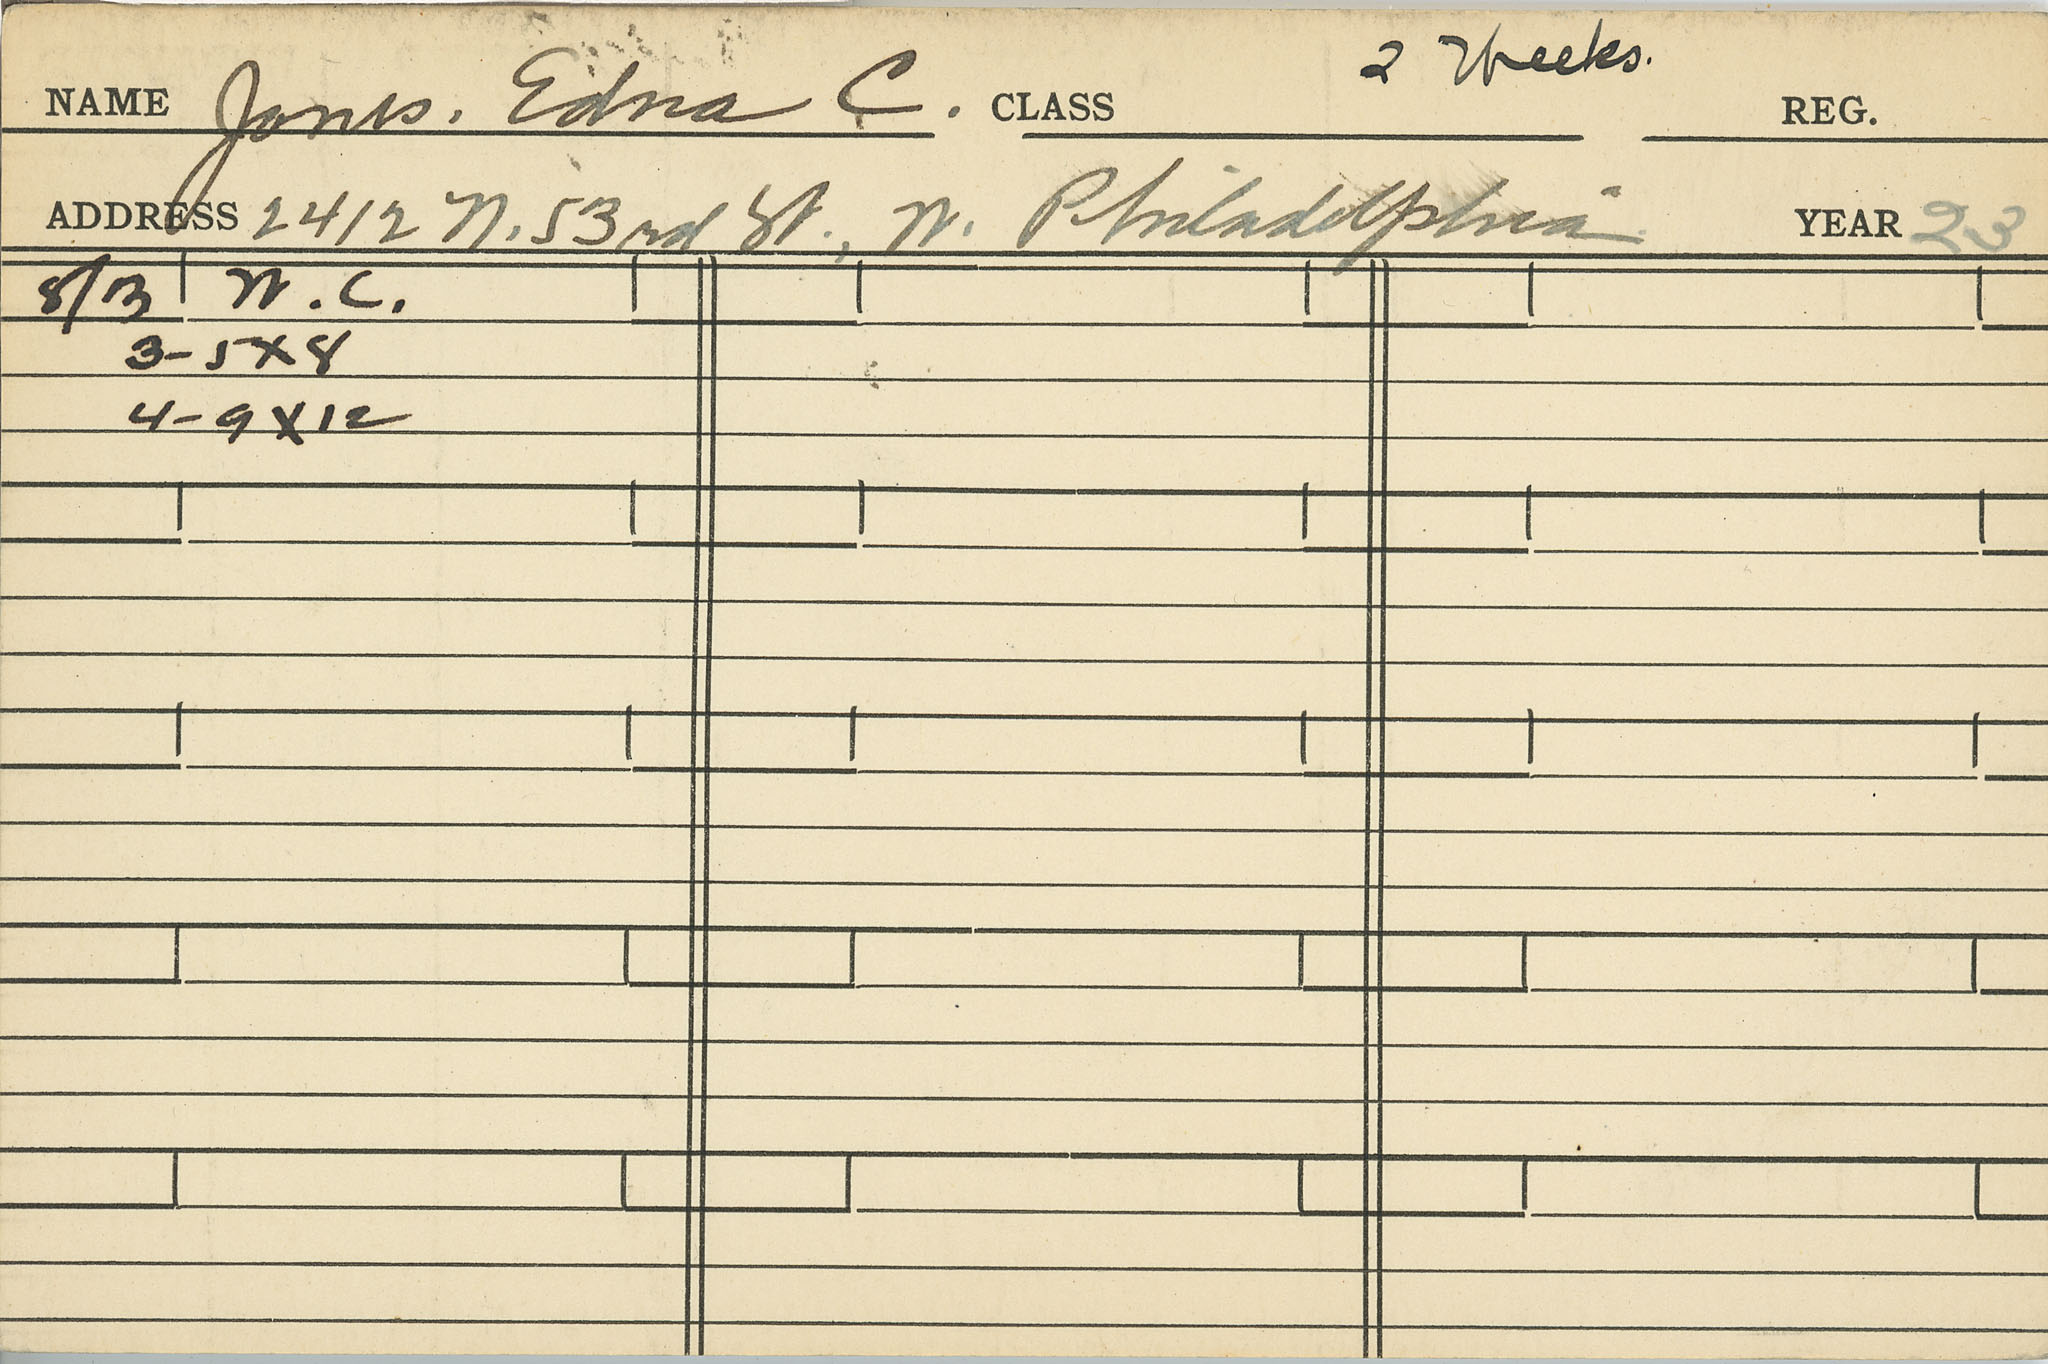 NAME Jones. Edna C. CLASS 2 Weeks. REG.
ADDRESS 2412 N. 53rd St., W. Philadelphia YEAR 23
8/3 W.C.
3-5X8
4-9X12